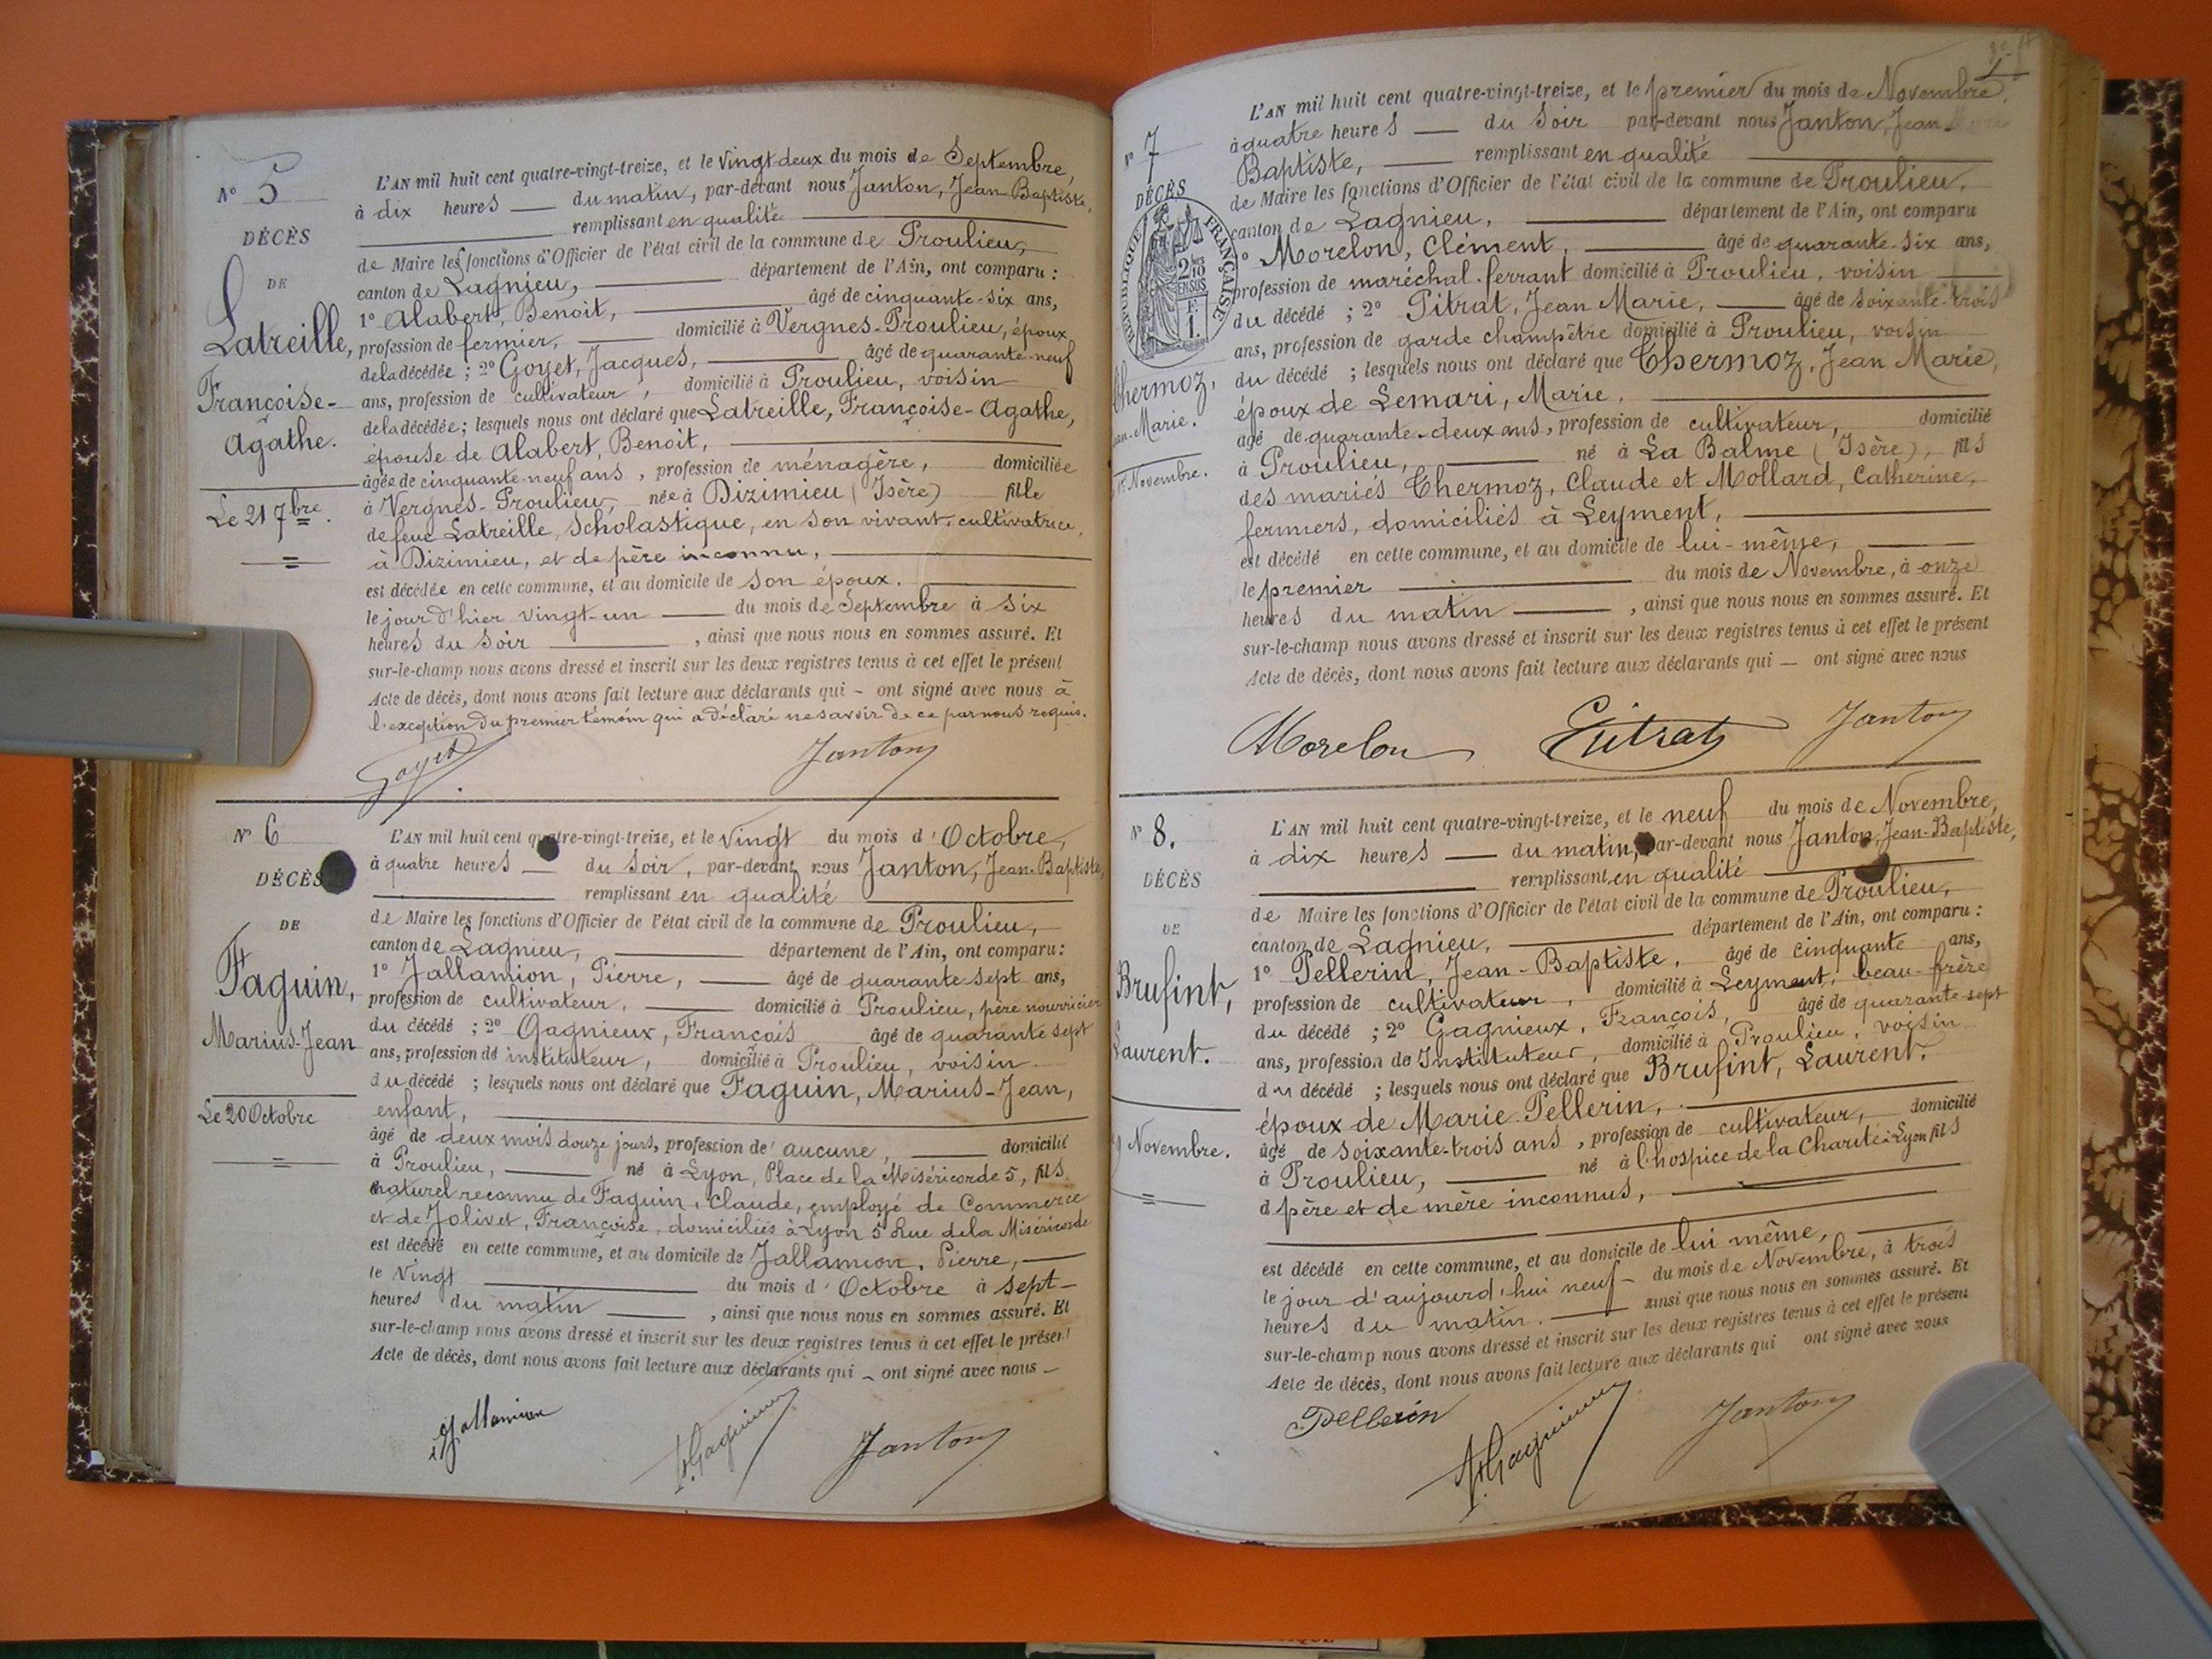 N° 5
DÉCÈS
DE
Latreille,
Françoise-
Agathe.
Le 21 7bre.
L'AN mil huit cent quatre-vingt-treize, et le vingt-deux du mois de Septembre,
à dix heures du matin, par-devant nous Janton, Jean Baptiste,
remplissant en qualité
de Maire les fonctions d'Officier de l'état civil de la commune de Proulieu,
canton de Lagnieu, département de l'Ain, ont comparu :
1° Alabert, Benoit, âgé de cinquante-six ans,
profession de fermier, domicilié à Vergnes-Proulieu, époux
de la décédée ; 2° Goyet, Jacques, âgé de quarante-neuf
ans, profession de cultivateur, domicilié à Proulieu, voisin
de la décédée ; lesquels nous ont déclaré que Latreille, Françoise-Agathe,
épouse de Alabert, Benoit,
âgée de cinquante-neuf ans, profession de ménagère, domiciliée
à Vergnes-Proulieu, née à Dizimieu (Isère) fille
de feue Latreille, Scholastique, en son vivant, cultivatrice,
à Dizimieu, et de père inconnu,
est décédée en cette commune, et au domicile de son époux,
le jour d'hier vingt-un du mois de Septembre à six
heures du soir, ainsi que nous nous en sommes assuré. Et
sur-le-champ nous avons dressé et inscrit sur les deux registres tenus à cet effet le présent
Acte de décès, dont nous avons fait lecture aux déclarants qui – ont signé avec nous à
l'exception du premier témoin qui a déclaré ne savoir de ce par nous requis.
Goyet Janton
N° 6
DÉCÈS
DE
Faguin,
Marius-Jean
Le 20 Octobre
L'AN mil huit cent quatre-vingt-treize, et le vingt du mois d'Octobre,
à quatre heures du soir, par-devant nous Janton, Jean-Baptiste,
remplissant en qualité
de Maire les fonctions d'Officier de l'état civil de la commune de Proulieu,
canton de Lagnieu, département de l'Ain, ont comparu :
1° Jallamion, Pierre, âgé de quarante sept ans,
profession de cultivateur, domicilié à Proulieu, père nourricier
du décédé ; 2° Gagnieux, François âgé de quarante sept
ans, profession de instituteur, domicilié à Proulieu, voisin
du décédé ; lesquels nous ont déclaré que Faguin, Marius-Jean,
enfant,
âgé de deux mois douze jours, profession de aucune, domicilié
à Proulieu, né à Lyon, Place de la Miséricorde 5, fils
naturel reconnu de Faguin, Claude, employé de Commerce
et de Jolivet, Françoise, domiciliés à Lyon 5 Rue de la Miséricorde
est décédé en cette commune, et au domicile de Jallamion, Pierre,
le vingt du mois d'Octobre à sept
heures du matin, ainsi que nous nous en sommes assuré. Et
sur-le-champ nous avons dressé et inscrit sur les deux registres tenus à cet effet le présent
Acte de décès, dont nous avons fait lecture aux déclarants qui – ont signé avec nous –
Jallamion Gagnieux Janton
N° 7
DÉCÈS
RÉPUBLIQUE FRANÇAISE
Chermoz,
Jean-Marie.
1er Novembre.
L'AN mil huit cent quatre-vingt-treize, et le premier du mois de Novembre,
à quatre heures du soir par-devant nous Janton, Jean-
Baptiste, remplissant en qualité
de Maire les fonctions d'Officier de l'état civil de la commune de Proulieu,
canton de Lagnieu, département de l'Ain, ont comparu
1° Morelon, Clément, âgé de quarante-six ans,
profession de maréchal-ferrant domicilié à Proulieu, voisin
du décédé ; 2° Pitrat, Jean Marie, âgé de soixante-trois
ans, profession de garde champêtre domicilié à Proulieu, voisin
du décédé ; lesquels nous ont déclaré que Chermoz, Jean Marie,
époux de Lemari, Marie,
âgé de quarante-deux ans, profession de cultivateur, domicilié
à Proulieu, né à La Balme (Isère), fils
des mariés Chermoz, Claude et Mollard, Catherine,
fermiers, domiciliés à Leyment,
est décédé en cette commune, et au domicile de lui-même,
le premier du mois de Novembre, à onze
heures du matin, ainsi que nous nous en sommes assuré. Et
sur-le-champ nous avons dressé et inscrit sur les deux registres tenus à cet effet le présent
Acte de décès, dont nous avons fait lecture aux déclarants qui – ont signé avec nous
Morelon Pitrat Janton
N° 8.
DÉCÈS
DE
Brufint,
Laurent.
9 Novembre.
L'AN mil huit cent quatre-vingt-treize, et le neuf du mois de Novembre,
à dix heures du matin, par-devant nous Janton, Jean-Baptiste,
remplissant en qualité
de Maire les fonctions d'Officier de l'état civil de la commune de Proulieu,
canton de Lagnieu, département de l'Ain, ont comparu :
1° Pellerin, Jean-Baptiste, âgé de cinquante ans,
profession de cultivateur, domicilié à Leyment, beau-frère
du décédé ; 2° Gagnieux, François, âgé de quarante-sept
ans, profession de Instituteur, domicilié à Proulieu, voisin
du décédé ; lesquels nous ont déclaré que Brufint, Laurent,
époux de Marie Pellerin,
âgé de soixante-trois ans, profession de cultivateur, domicilié
à Proulieu, né à l'hospice de la Charité à Lyon fils
d père et de mère inconnus,
est décédé en cette commune, et au domicile de lui même,
le jour d'aujourd'hui neuf du mois de Novembre, à trois
heures du matin. ainsi que nous nous en sommes assuré. Et
sur-le-champ nous avons dressé et inscrit sur les deux registres tenus à cet effet le présent
Acte de décès, dont nous avons fait lecture aux déclarants qui ont signé avec nous
Pellerin Gagnieux Janton